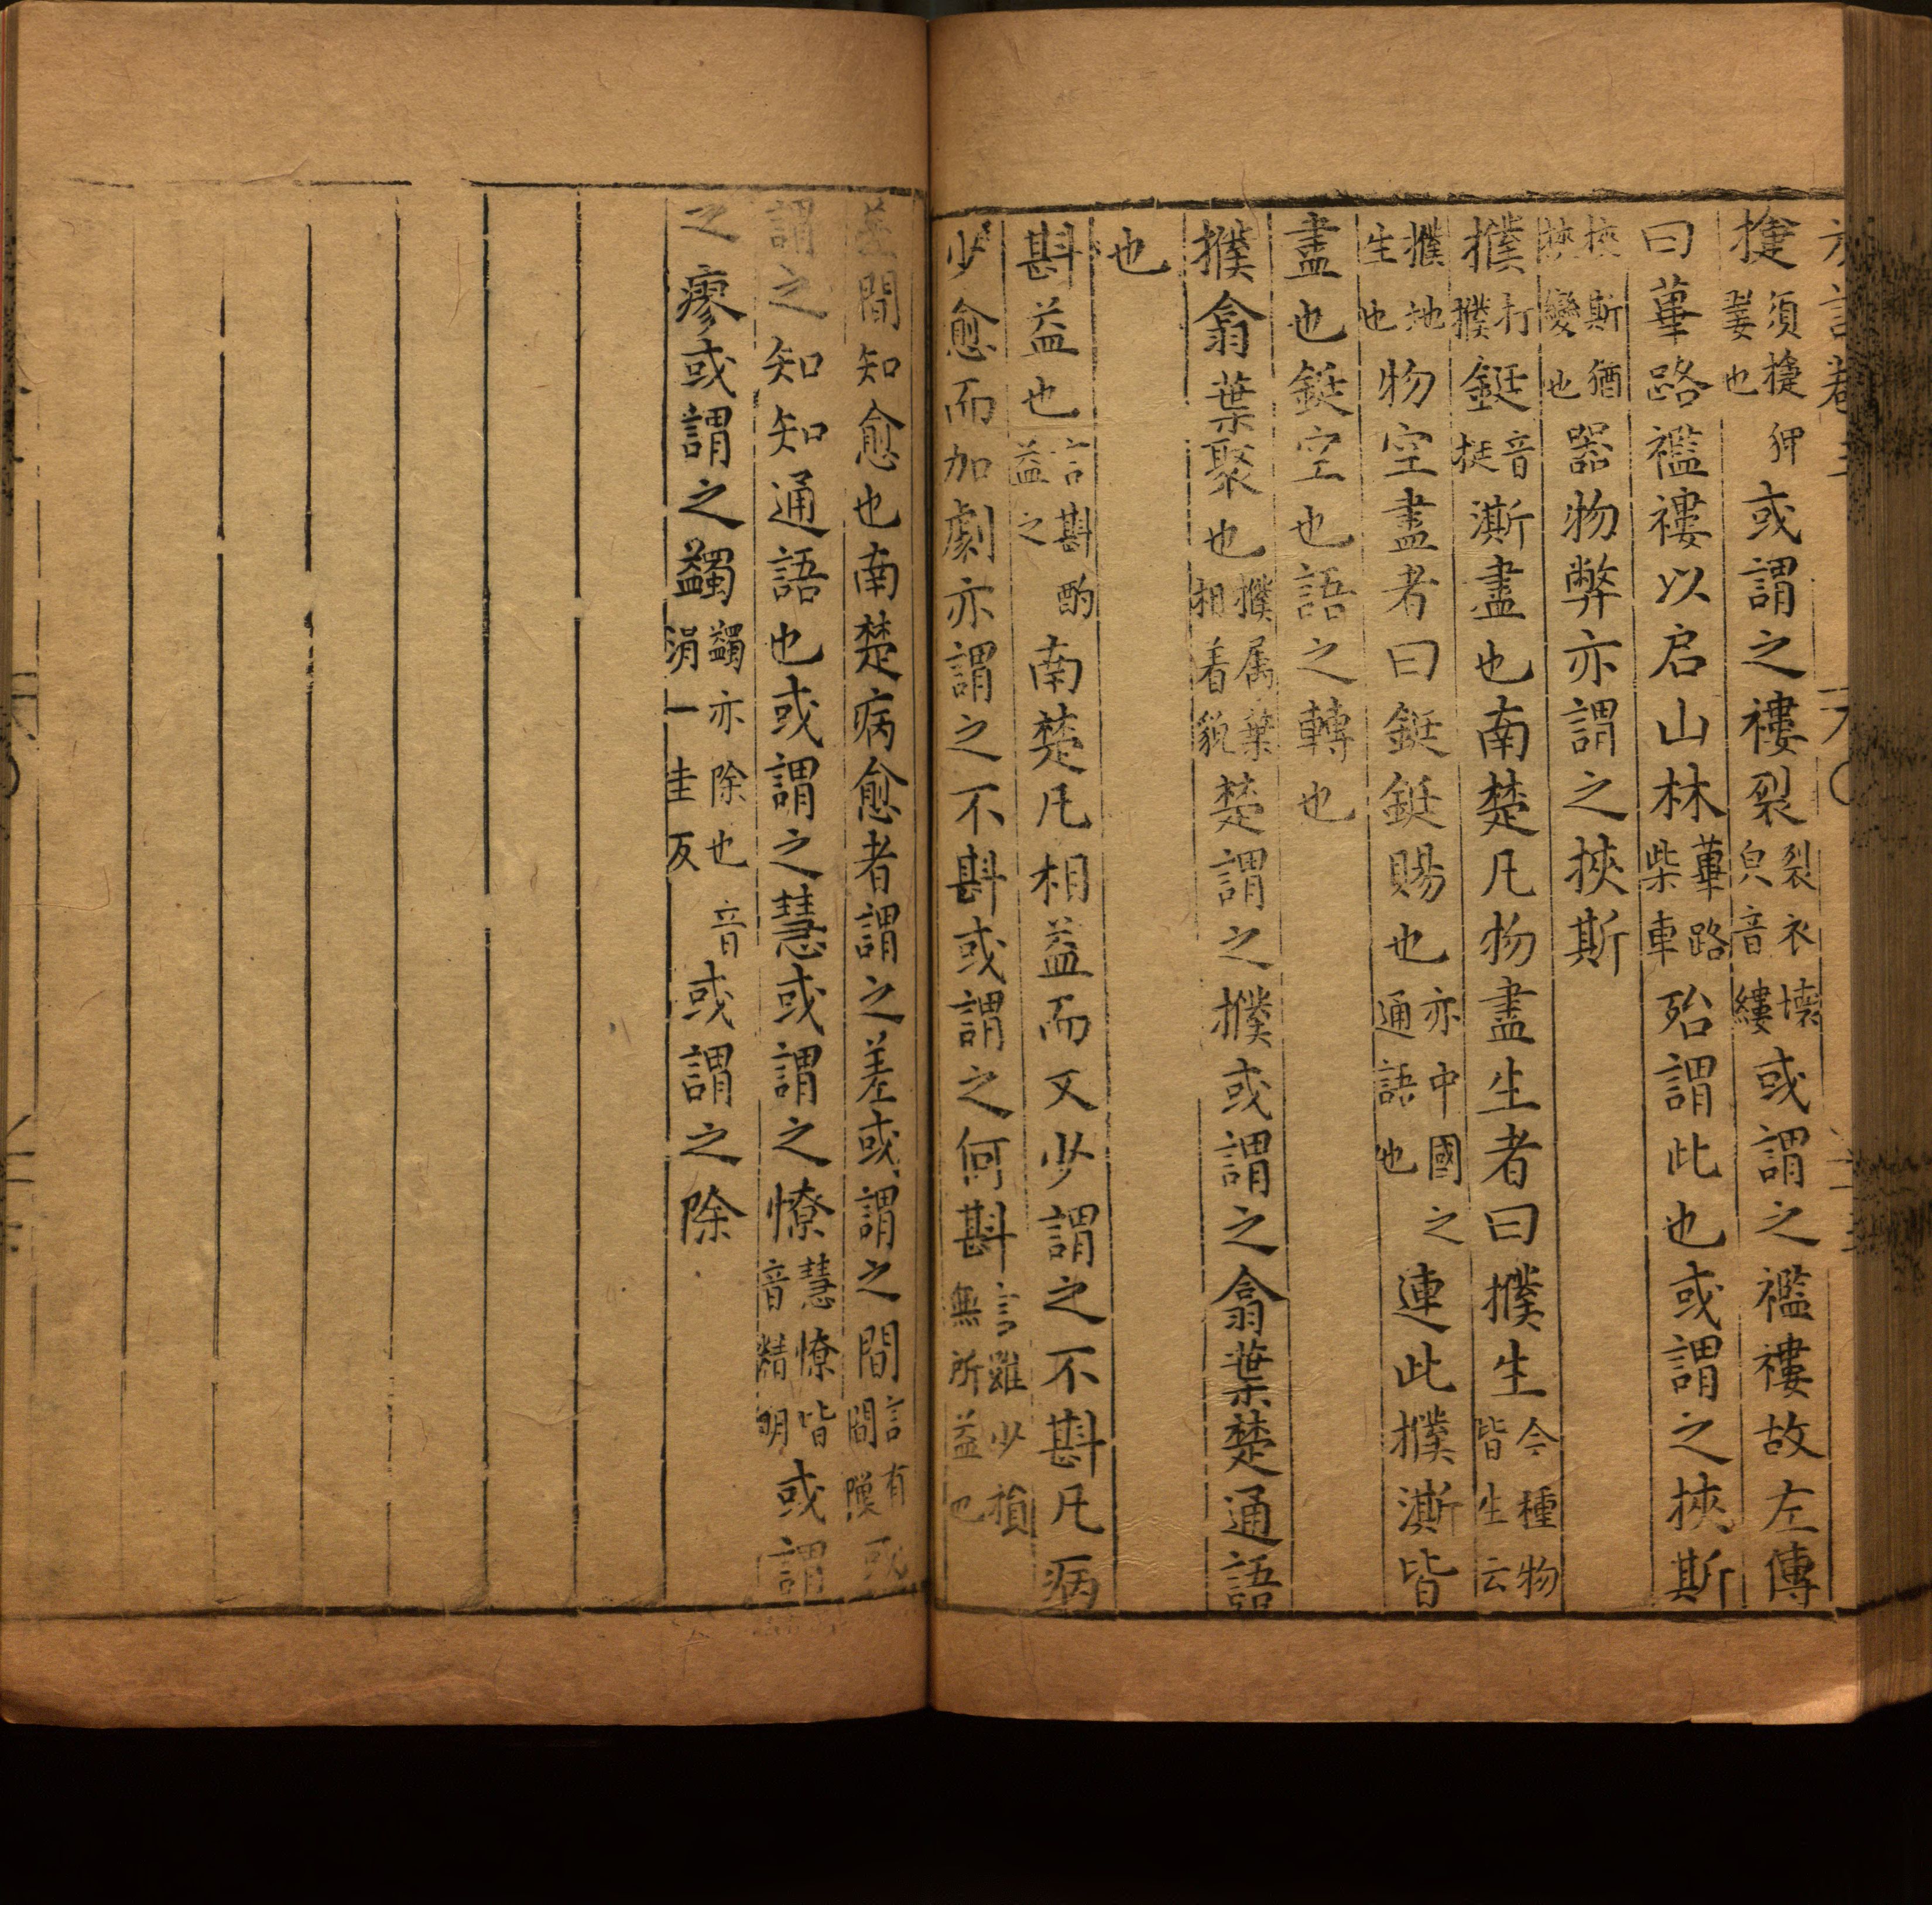 捷須捷狎翣也或謂之褸裂裂衣壞皃音縷或謂之襤褸故左傳
曰蓽路襤褸以启山林蓽路柴車殆謂此也或謂之挾斯
挾斯猶挾變也器物弊亦謂之挾斯
撲打撲鋌音挺澌盡也南楚凡物盡生者曰撲生今種物皆生云
撲地生也物空盡者曰鋌鋌賜也亦中國之通語也連此撲澌皆
盡也鋌空也語之轉也
撲翕葉聚也撲属葉相着貌楚謂之撲或謂之翕葉楚通語
也
斟益也言斟酌益之南楚凡相益而又少謂之不斟凡病
少愈而加劇亦謂之不斟或謂之何斟言雖少損無所益也
差間知愈也南楚病愈者謂之差或謂之間言有間隟或
謂之知知通語也或謂之慧或謂之憭慧憭皆音精明或謂
之瘳或謂之蠲蠲亦除也音涓一圭反或謂之除